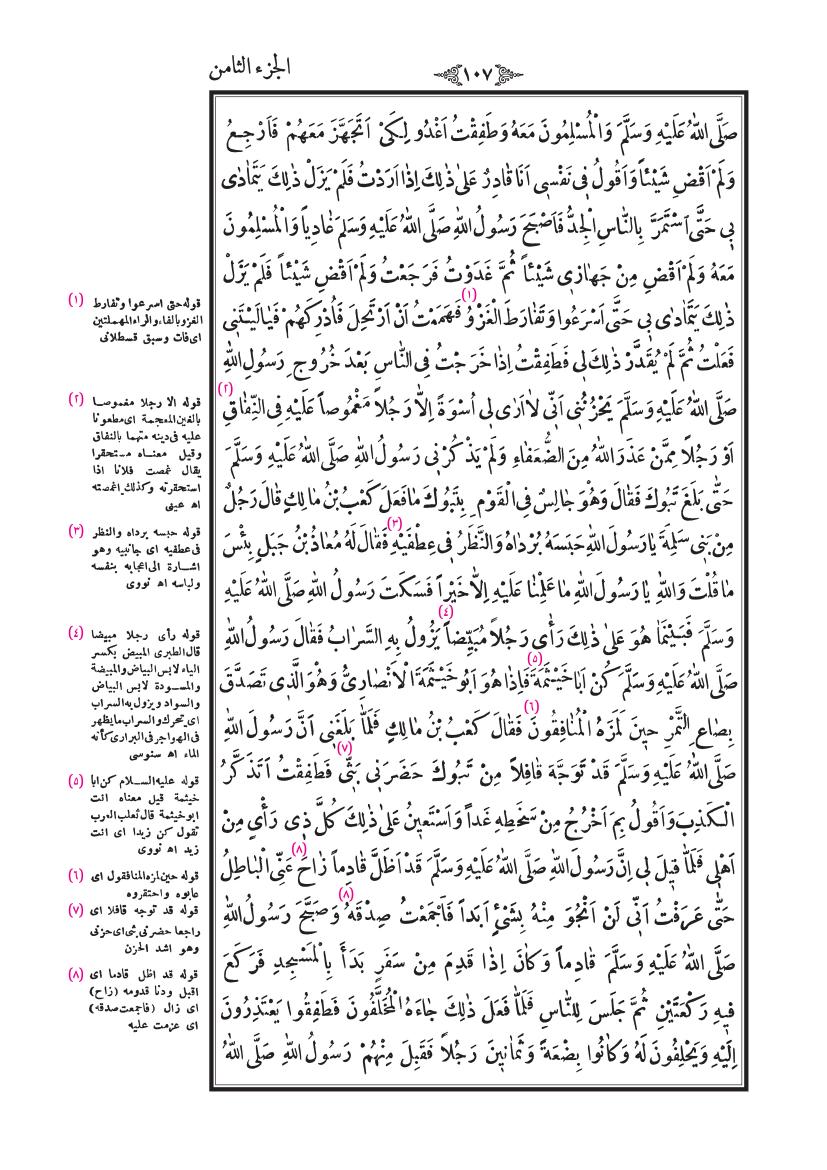 الجزء الثامن
١٠٧
صَلَّى اللهُ عَلَيْهِ وَسَلَّمَ وَالْمُسْلِمُونَ مَعَهُ وَطَفِقْتُ اَغْدُو لِكَىْ اَتَجَهَّزَ مَعَهُمْ فَاَرْجِعُ
وَلَمْ اَقْضِ شَيْئاً وَاَقُولُ فِى نَفْسِى اَنَا قَادِرٌ عَلىٰ ذٰلِكَ اِذَا اَرَدْتُ فَلَمْ يَزَلْ ذٰلِكَ يَتَمَادٰى
بِى حَتَّى اسْتَمَرَّ بِالنَّاسِ الْجِدُّ فَاَصْبَحَ رَسُولُ اللهِ صَلَّى اللهُ عَلَيْهِ وَسَلَّمَ غَادِياً وَالْمُسْلِمُونَ
مَعَهُ وَلَمْ اَقْضِ مِنْ جَهَازِى شَيْئاً ثُمَّ غَدَوْتُ فَرَجَعْتُ وَلَمْ اَقْضِ شَيْئاً فَلَمْ يَزَلْ
ذٰلِكَ يَتَمَادٰى بِى حَتَّى اَسْرَعُوا وَتَفَارَطَ الْغَزْوُ (١) فَهَمَمْتُ اَنْ اَرْتَحِلَ فَاُدْرِكَهُمْ فَيَالَيْتَنِى
فَعَلْتُ ثُمَّ لَمْ يُقَدَّرْ ذٰلِكَ لِى فَطَفِقْتُ اِذَا خَرَجْتُ فِى النَّاسِ بَعْدَ خُرُوجِ رَسُولِ اللهِ
صَلَّى اللهُ عَلَيْهِ وَسَلَّمَ يَحْزُنُنِى اَنِّى لَا اَرٰى لِى اُسْوَةً اِلاَّ رَجُلاً مَغْمُوصاً عَلَيْهِ فِى النِّفَاقِ (٢)
اَوْ رَجُلاً مِمَّنْ عَذَرَ اللهُ مِنَ الضُّعَفَاءِ وَلَمْ يَذْكُرْنِى رَسُولُ اللهِ صَلَّى اللهُ عَلَيْهِ وَسَلَّمَ
حَتّٰى بَلَغَ تَبُوكَ فَقَالَ وَهُوَ جَالِسٌ فِى الْقَوْمِ بِتَبُوكَ مَا فَعَلَ كَعْبُ بْنُ مَالِكٍ قَالَ رَجُلٌ
مِنْ بَنِى سَلِمَةَ يَا رَسُولَ اللهِ حَبَسَهُ بُرْدَاهُ وَالنَّظَرُ فِى عِطْفَيْهِ (٣) فَقَالَ لَهُ مُعَاذُ بْنُ جَبَلٍ بِئْسَ
مَا قُلْتَ وَاللهِ يَا رَسُولَ اللهِ مَا عَلِمْنَا عَلَيْهِ اِلاَّ خَيْراً فَسَكَتَ رَسُولُ اللهِ صَلَّى اللهُ عَلَيْهِ
وَسَلَّمَ فَبَيْنَمَا هُوَ عَلىٰ ذٰلِكَ رَأٰى رَجُلاً مُبَيِّضاً (٤) يَزُولُ بِهِ السَّرَابُ فَقَالَ رَسُولُ اللهِ
صَلَّى اللهُ عَلَيْهِ وَسَلَّمَ كُنْ اَبَا خَيْثَمَةَ (٥) فَاِذَا هُوَ اَبُو خَيْثَمَةَ الْاَنْصَارِىُّ وَهُوَ الَّذِى تَصَدَّقَ
بِصَاعِ التَّمْرِ حِينَ لَمَزَهُ الْمُنَافِقُونَ (٦) فَقَالَ كَعْبُ بْنُ مَالِكٍ فَلَمَّا بَلَغَنِى اَنَّ رَسُولَ اللهِ
صَلَّى اللهُ عَلَيْهِ وَسَلَّمَ قَدْ تَوَجَّهَ قَافِلاً مِنْ تَبُوكَ حَضَرَنِى بَثِّى (٧) فَطَفِقْتُ اَتَذَكَّرُ
الْكَذِبَ وَاَقُولُ بِمَ اَخْرُجُ مِنْ سَخَطِهِ غَداً وَاَسْتَعِينُ عَلىٰ ذٰلِكَ كُلَّ ذِى رَأْىٍ مِنْ
اَهْلِى فَلَمَّا قِيلَ لِى اِنَّ رَسُولَ اللهِ صَلَّى اللهُ عَلَيْهِ وَسَلَّمَ قَدْ اَظَلَّ قَادِماً (٨) زَاحَ عَنِّى الْبَاطِلُ
حَتّٰى عَرَفْتُ اَنِّى لَنْ اَنْجُوَ مِنْهُ بِشَىْءٍ اَبَداً فَاَجْمَعْتُ صِدْقَهُ (٨) وَصَبَّحَ رَسُولُ اللهِ
صَلَّى اللهُ عَلَيْهِ وَسَلَّمَ قَادِماً وَكَانَ اِذَا قَدِمَ مِنْ سَفَرٍ بَدَأَ بِالْمَسْجِدِ فَرَكَعَ
فِيهِ رَكْعَتَيْنِ ثُمَّ جَلَسَ لِلنَّاسِ فَلَمَّا فَعَلَ ذٰلِكَ جَاءَهُ الْمُخَلَّفُونَ فَطَفِقُوا يَعْتَذِرُونَ
اِلَيْهِ وَيَحْلِفُونَ لَهُ وَكَانُوا بِضْعَةً وَثَمَانِينَ رَجُلاً فَقَبِلَ مِنْهُمْ رَسُولُ اللهِ صَلَّى اللهُ
(١) قوله حتى اسرعوا وتفارط
الغزو بالفاء والراء المهملتين
اى فات وسبق قسطلانى
(٢) قوله الا رجلا مغموصا
بالغين المعجمة اى مطعونا
عليه فى دينه متهما بالنفاق
وقيل معناه مستحقرا
يقال غمصت فلانا اذا
استحقرته وكذلك اغمصته
اه عينى
(٣) قوله حبسه برداه والنظر
فى عطفيه اى جانبيه وهو
اشارة الى اعجابه بنفسه
ولباسه اه نووى
(٤) قوله رأى رجلا مبيضا
قال الطبرى المبيض بكسر
الياء لابس البياض والمبيضة
والمسودة لابس البياض
والسواد ويزول به السراب
اى يتحرك والسراب ما يظهر
فى الهواجر فى البرارى كأنه
الماء اه سنوسى
(٥) قوله عليه السلام كن ابا
خيثمة قيل معناه انت
ابو خيثمة قال ثعلب العرب
تقول كن زيدا اى انت
زيد اه نووى
(٦) قوله حين لمزه المنافقون اى
عابوه واحتقروه
(٧) قوله قد توجه قافلا اى
راجعا حضرنى بثى اى حزنى
وهو اشد الحزن
(٨) قوله قد اظل قادما اى
اقبل ودنا قدومه (زاح)
اى زال (فاجمعت صدقه)
اى عزمت عليه